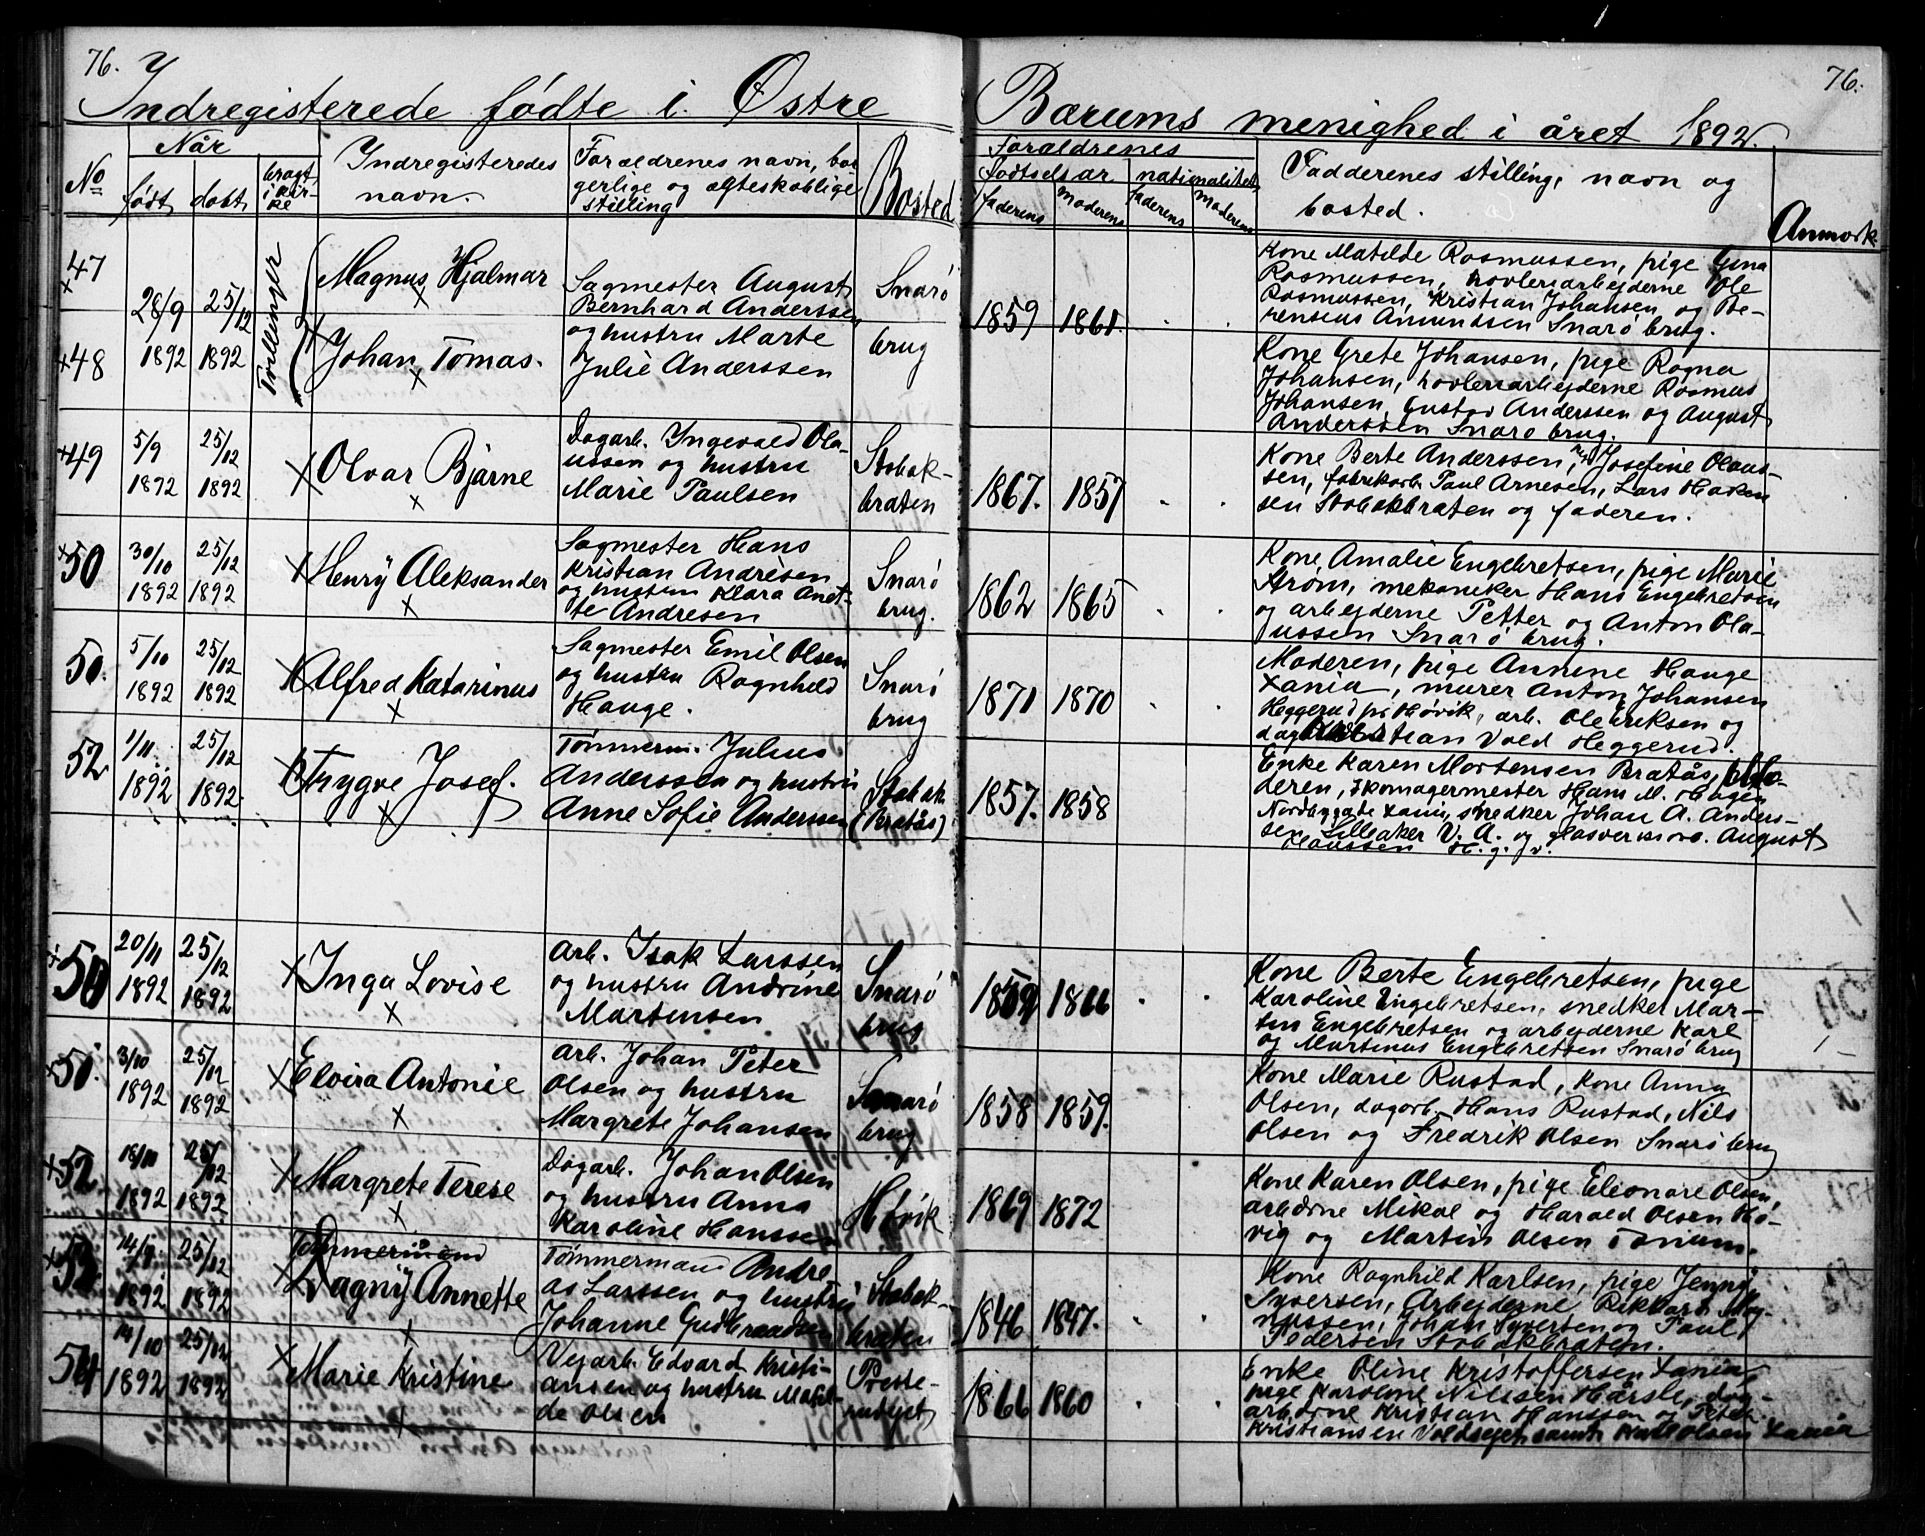 76.
Indregisterede fødte i Østre
Bærums menighed i året 1892.
76.
No
Når
født
døbt
bragt i kirke
Indregisteredes navn.
Forældrenes navn, borgerlige og ægteskablige stilling
Bosted
Forældrenes
fødselsår
nationalitet
faderens
moderens
faderens
moderens
Faddernes stilling, navn og bosted.
Anmærk
47
28/9 1892
25/12 1892
Tvillinger
Magnus Hjalmar
Sagmester August
Bernhard Anderssen
og hustru Marte
Julie Anderssen
Snarø
brug
1859
1861.
Kone Matilde Rasmussen, pige Gina
Rasmussen, høvleriarbejderne Ole
Rasmussen, Kristian Johansen og Be-
rensius Amundsen Snarø brug.
48
Johan Tomas.
Kone Grete Johansen, pige Ragna
Johansen, høvleriarbejderne Rasmus
Johansen, Gustav Anderssen og August
Anderssen Snarø brug.
49
5/9 1872
25/12 1892
Olvar Bjarne
Dagarb. Ingevald Ola-
ussen og hustru
Marie Paulsen
Stabæk-
braten
1867.
1857
Kone Berte Anderssen, Josefine Olaus-
sen, fabrikarb. Paul Arnesen, Lars Haken
sen Stabækbraten og faderen.
50
30/10 1892
25/12 1892
Henry Aleksander
Sagmester Hans
Kristian Andresen
og hustru Klara
te Andresen
Snarø
brug.
1862
1865
Kone Amalie Engebretsen, pige Marie
Strøm, mekaniker Hans Engebretsen
og arbejderne Petter og Anton Ola-
ussen Snarø brug.
50.
5/10 1892
25/12 1892
Alfred Katarinus
Sagmester Emil Olsen
og hustru Ragnhild
Hauge.
Snarø
brug
1871
1870
Moderen, pige Annine Hauge
Xania, murer Anton Johansen
Heggerud pr Høvik, arb. Ole Eriksen og
Vold Heggerud.
52
1/11 1892
25/12 1892
Trygve Josef.
Tømmerm. Julius
Anderssen og hustru
Anne Sofie Anderssen
Stabæk
(Bratås)
1857.
1858
Enke Karen Mortensen Bratås, Mo-
deren, skomagermester Hans M. Hagen
Nordbygade Xania, snedker Johan A. Anders-
sen Lilleaker V. A. og glasverksarb. August
Hanssen H. g. v.
50
20/11 1892
25/12 1892
Inga Lovise
Arb. Isak Larssen
og hustru Andrine
Martinsen
Snarø
brug
1869
1866
Kone Berte Engebretsen, pige
Karoline Engebretsen, snedker Mar-
tin Engebretsen og arbejderne Karl
og Martinus Engebretsen Snarø brug
51.
3/10 1892
25/12 1892
Elvira Antonie
Arb. Johan Peter
Olsen og hustru
Margrete Johansen
Snarø
brug
1858
1859.
Kone Marie Rustad, kone Anna
Olsen, dagarb. Hans Rustad, Nils
Olsen og Fredrik Olsen Snarø brug
52.
18/10 1892
25/12 1892
Margrete Terese
Dagarb. Johan Olsen
og hustru Anna
Karoline Hanssen
Høvik
1869
1872
Kone Karen Olsen, pige Eleonare Olsen,
arbderne Mikal og Harald Olsen Hø-
vig og Martin Olsen Tanum.
53.
14/9 1892
25/12 1892
Tømmermand
Dagny Annette
Tømmermand Andre
as Larssen og hustru
Johanne Gudbrandsen
Stabæk-
braten
1846
1847.
Kone Ragnhild Karlsen, pige Jenny
Syversen, Arbejderne Rikhard Mag-
nussen, Johan Syversen og Paul
Pedersen Stabækbraten.
54
14/10 1892
25/12 1892
Marie Kristine
Vejarb. Edvard Kristi-
ansen og hustru Matil-
de Olsen
Preste-
rudejet
1866
1860
Enke Oline Kristoffersen Xania,
pige Karoline Nilssen Hårsle, dag-
arbderne Kristian Hanssen og Peter
Kristiansen Voldsejet samt Karl Olsen Xania